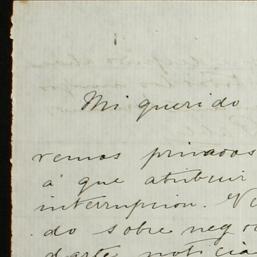 Mi querido
remos privados
á que atribuir
interrupcion. Ve
do sobre nego
darte noticia